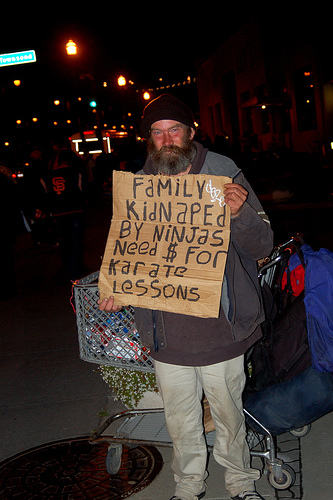 Townsend
FAMILY
KidNAPEd
BY NiNJAS
Need $ FOR
KaraTe
LESSONS
SF